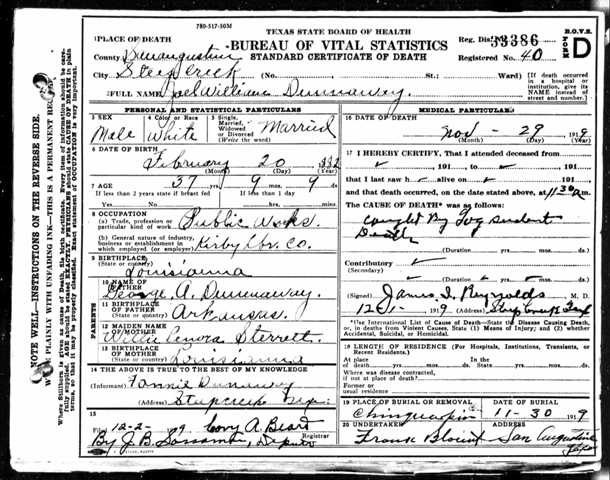 780-517-50M
TEXAS STATE BOARD OF HEALTH
BUREAU OF VITAL STATISTICS
STANDARD CERTIFICATE OF DEATH
Reg. Dis. 33386
Registered No. 40
B.O.V.S.
FORM D
1 PLACE OF DEATH
County San augustine
City Steep creek (No. St.: Ward)
(If death occurred in a hospital or institution, give its NAME instead of street and number.)
2 FULL NAME Joel William Dunnaway.
PERSONAL AND STATISTICAL PARTICULARS
3 SEX
Male
4 Color or Race
White
5 Single, Married, Widowed or Divorced (Write the word)
Married
6 DATE OF BIRTH
February 20
(Month) (Day) (Year)
7 AGE
37 yrs. 9 mos. 9 ds.
If less than 2 years state if breast fed If less than 1 day
Yes No hours min.
8 OCCUPATION
(a) Trade, profession or particular kind of work Public Works.
(b) General nature of industry, business or establishment in which employed (or employer) Kirby Lbr. Co.
9 BIRTHPLACE
(State or county) Louisianna
PARENTS
10 NAME OF FATHER
George A. Dunnaway.
11 BIRTHPLACE OF FATHER
(State or country) Arkansas.
12 MAIDEN NAME OF MOTHER
Willie Sterrett.
13 BIRTHPLACE OF MOTHER
(State or country) Louisianna
14 THE ABOVE IS TRUE TO THE BEST OF MY KNOWLEDGE
(Informant) Fannie Dunaway
(Address) Steepcreek
15
Filed 12-2- 19 Cory A. Beard
Registrar
By J.B. Deputy
MEDICAL PARTICULARS
16 DATE OF DEATH
Nov - 29 1919
(Month) (Day) (Year)
17 I HEREBY CERTIFY, That I attended deceased from
191 to 191
that I last saw h alive on 191
and that death occurred, on the date stated above, at 11 30 m.
The CAUSE OF DEATH* was as follows:
caught By log sudent
Death
(Duration yrs. mos. ds.
Contributory
(Secondary)
(Duration yrs. mos. ds.
(Signed) James I. Reynolds, M. D.
1919 (Address) Steep Creek Tex
*Use International List of Cause of Death—State the Disease Causing Death, or, in deaths from Violent Causes, State (1) Means of Injury; and (2) whether Accidental, Suicidal, or Homicidal.
18 LENGTH OF RESIDENCE (For Hospitals, Institutions, Transients, or Recent Residents.)
At place of death yrs. mos. ds. In the State yrs. mos. ds.
Where was disease contracted, if not at place of death?
Former or usual residence
19 PLACE OF BURIAL OR REMOVAL
Chinquapin
DATE OF BURIAL
11-30 1919
20 UNDERTAKER
Frank Blount
ADDRESS
San Augustine Texas
NOTE WELL—INSTRUCTIONS ON THE REVERSE SIDE.
WRITE PLAINLY WITH UNFADING INK—THIS IS A PERMANENT RECORD